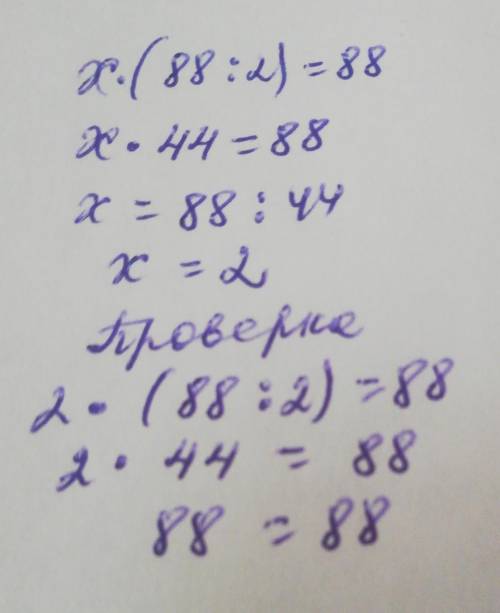 x·(88:2)=88
x·44=88
x=88:44
x=2
Проверка
2·(88:2)=88
2·44=88
88=88